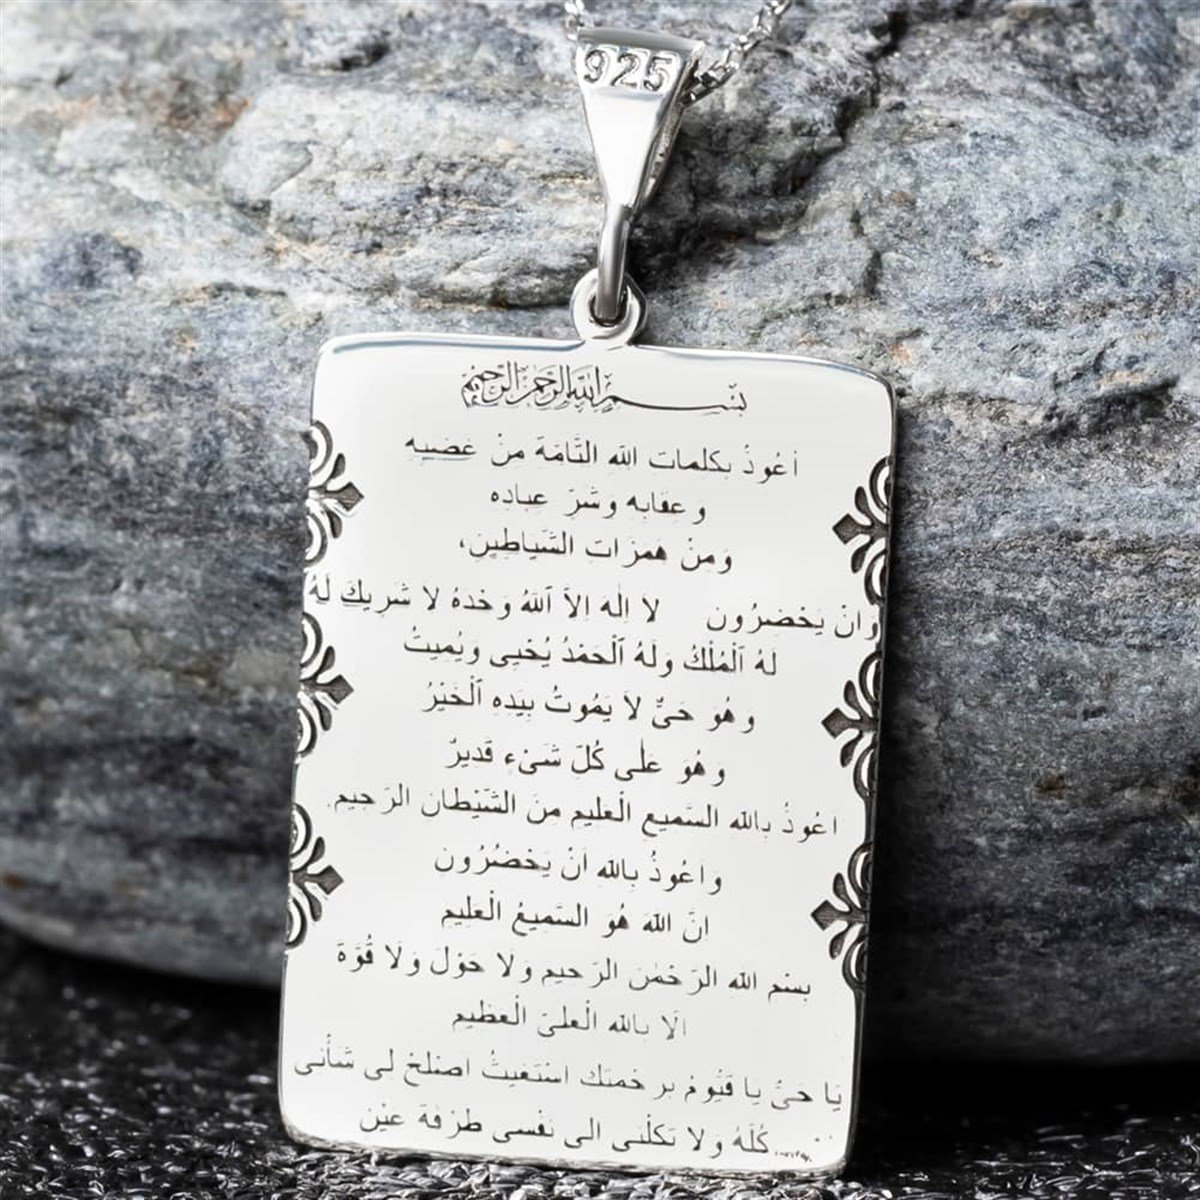 925
بسم الله الرحمن الرحيم
اَعُوذُ بِكلمات الله التَّامَّة منْ غضبه
و عقابه وشرّ عباده
ومنْ همزات الشياطين،
وانْ يَحْضِرُون لا اِلٰهَ اِلاَّ اللهُ وَحْدَهُ لا شَريكَ لَهُ
لَهُ الْمُلْكُ وَلَهُ الْحَمْدُ يُحْيِى وَيُمِيتُ
وَهُوَ حَىٌّ لاَ يَمُوتُ بِيَدِهِ الْخَيْرُ
وَهُوَ عَلٰى كُلِّ شَىْءٍ قَديرٌ
اَعُوذُ بِالله السَّميع الْعَليم منَ الشَّيْطان الرَّجيم
وَاَعُوذُ بِاللهِ اَنْ يَحْضُرُون
انَّ اللهَ هُوَ السَّميعُ الْعَليم
بسْم الله الرَّحْمٰن الرَّحيم وَلَا حَوْلَ وَلَا قُوَّةَ
الَّا باللّه الْعَلىّ الْعَظيم
يَا حَىُّ يَا قَيُّومُ بِرَحْمتك اسْتَغيثُ اصْلحْ لى شَأْنى
كُلَّهُ وَلا تَكلْنى الى نَفْسى طَرْفَةَ عَيْن